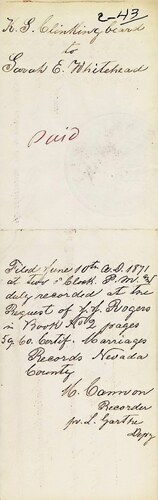 2-43
K. S. Clinkingbeard
to
Sarah E. Whitehead
Paid
Filed June 10th A.D. 1871
at two o Clock P.M. &
duly recorded at the
Request of J. J. Rogers
in Book No 2 pages
59 Co. Certif. Marriages
Records Nevada
County
M. Cannon
Recorder
pr. L. Garthe
Depy